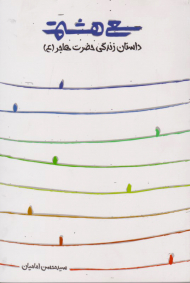 سعی هشتم
داستان زندگی حضرت هاجر (ع)
سیدمحسن امامیان